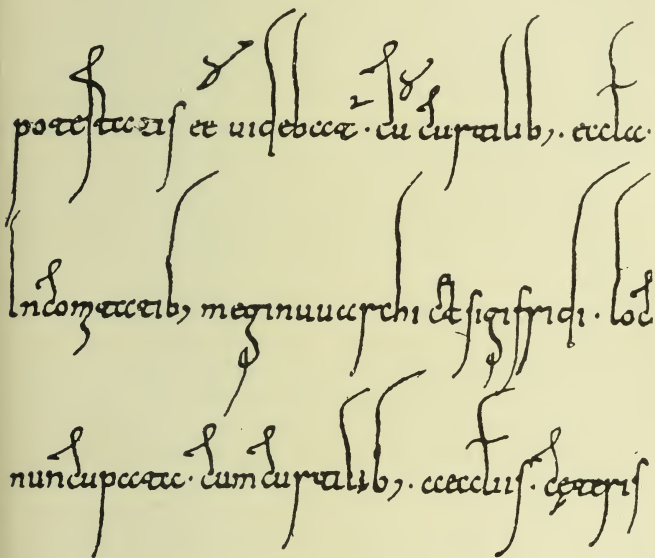 potestatis ee uidebat · cū curtilib; · eccla ·
In comitatib; meginuuarhi et sigifridi · loc
nuncupata · cum curtilib; · aeccliis · cęteris